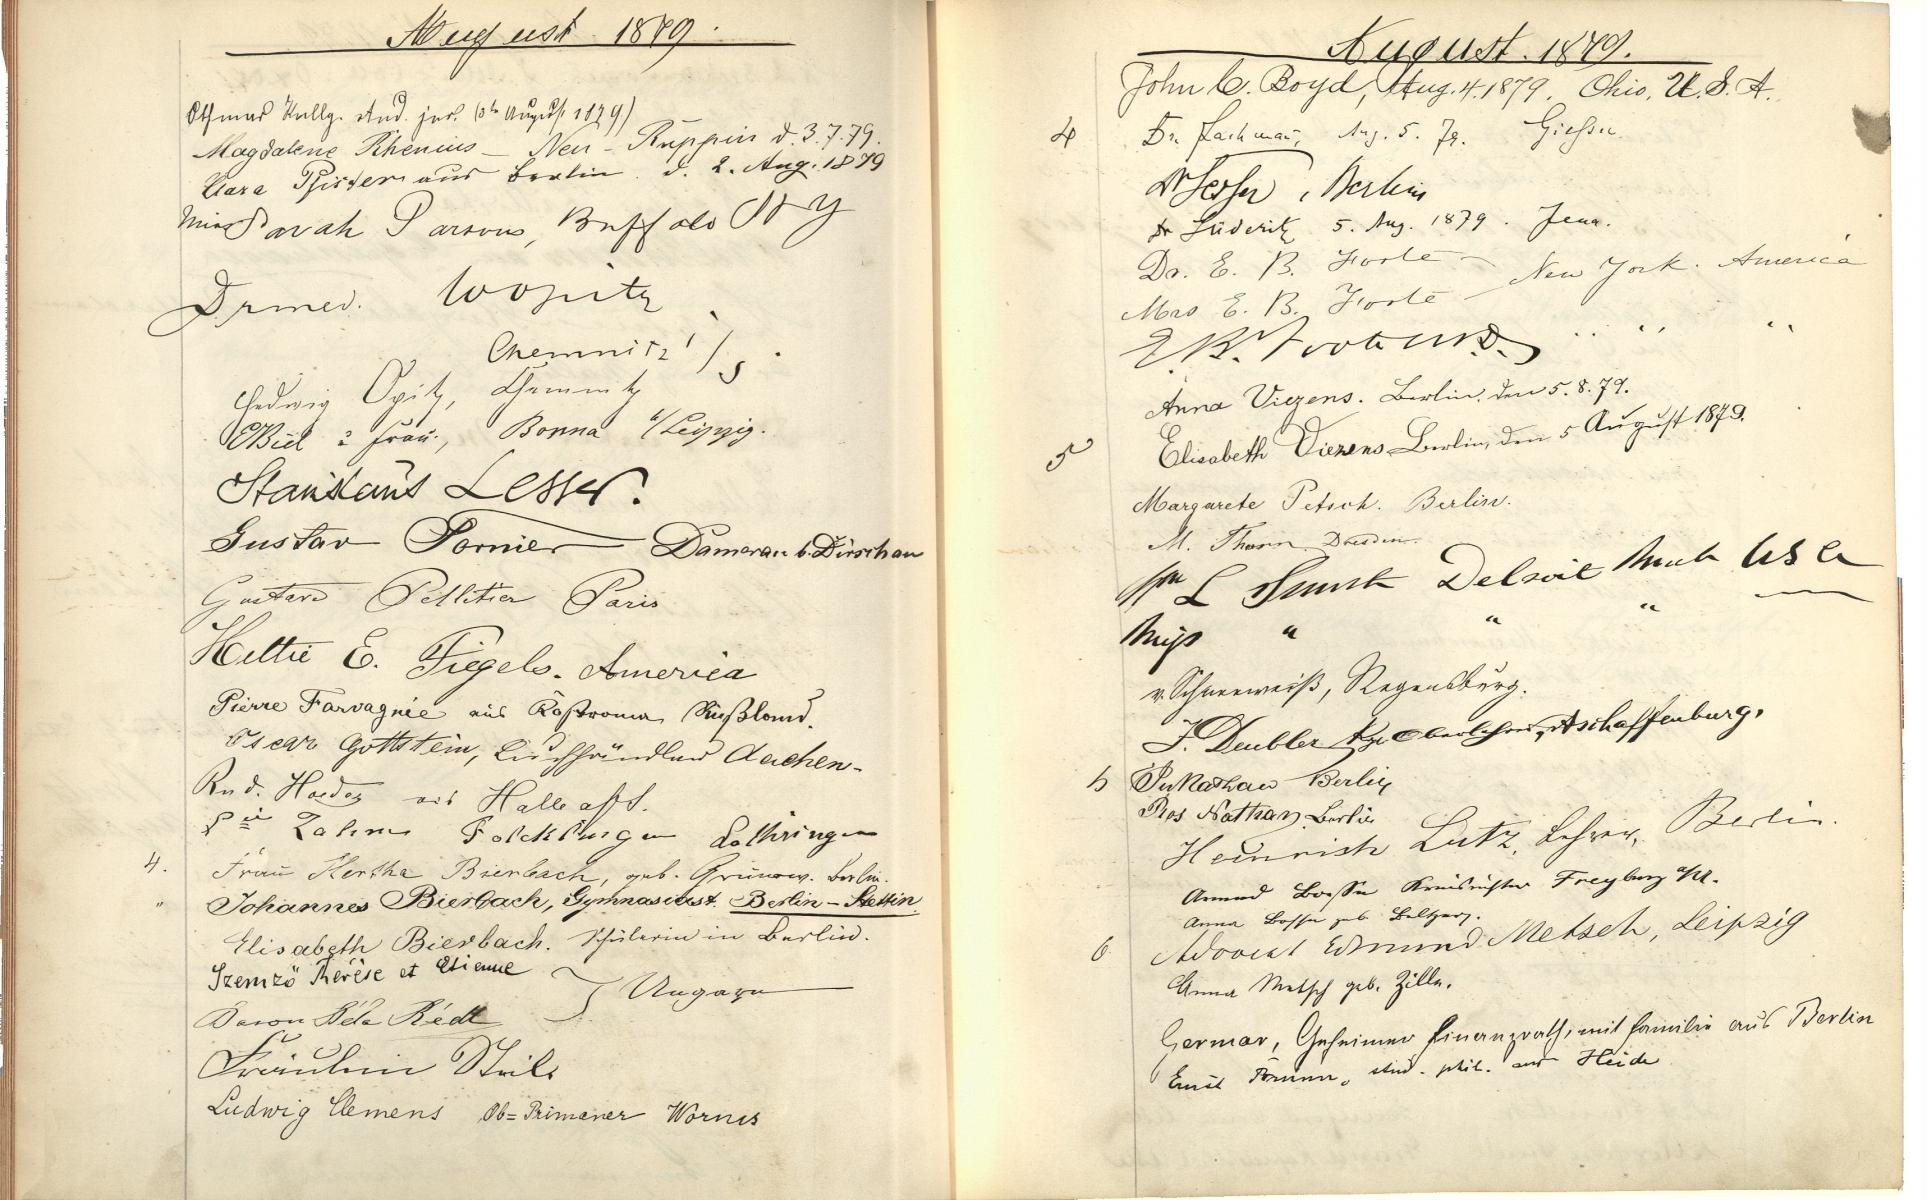 August. 1879.
Othmar Kellg. stud. jur. (3te August 1879)
Magdalene Rhenius – Neu-Ruppin d. 3.7.79.
Clara Pfister aus Berlin. d. 2. Aug. 1879
Miss Sarah Parsons, Buffalo N Y
Dr med. Wopitz
Chemnitz i/S.
Hedwig Opitz, Chemnitz
Biel & Frau, Borna b/Leipzig.
Stanislaus Lesser.
Gustav Fornier Damerau b. Dirschau
Gustave Pelletier Paris
Hettie E. Fiegels. America
Pierre Farvagnie aus Kostroma Rußland.
Oscar Gottstein, Buchhändler Aachen–
Rud. Haedez aus Halle a/S.
Zahm Folcklingen Lothringen
4. Frau Hertha Bierbach, geb. Grunow. Berlin.
" Johannes Bierbach, Gymnasiast. Berlin–Stettin.
Elisabeth Bierbach. Schülerin in Berlin.
Szemző Thérèse et Etienne } Ungarn
Baron Béla Rédl
Fräulein Steils
Ludwig Clemens Ob=Primaner Worms
August. 1879.
John C. Boyd, Aug. 4. 1879. Ohio. U. S. A.
4 Dr. Aug. 5. 79. Gießen.
Dr , Berlin
Dr Lüderitz 5. Aug. 1879. Jena.
Dr. E. B. Foote – New York. America
Mrs E. B. Foote –
E. B. Foote M.D. " " "
Anna Viezens. Berlin, den 5. 8. 79.
5 Elisabeth Viezens Berlin, den 5 August 1879.
Margarete Petsch. Berlin.
M. Thorn. Dresden.
L Smith Detroit Mich USA
Miss " " "
v. Schneeweiß, Regensburg.
J. Deubler Kgl. Oberlehrer, Aschaffenburg.
Nathan Berlin
Ros Nathan, Berlin
Heinrich Lutz, Lehrer, Berlin.
Bosse Kreisrichter Freyburg a/U.
Anna Bosse geb.
6 Advocat Edmund Metsch, Leipzig
Anna Metsch geb. Zille.
Germar, Geheimer Finanzrath, mit Familie aus Berlin
Ernst Brunn, stud. phil. aus Heide